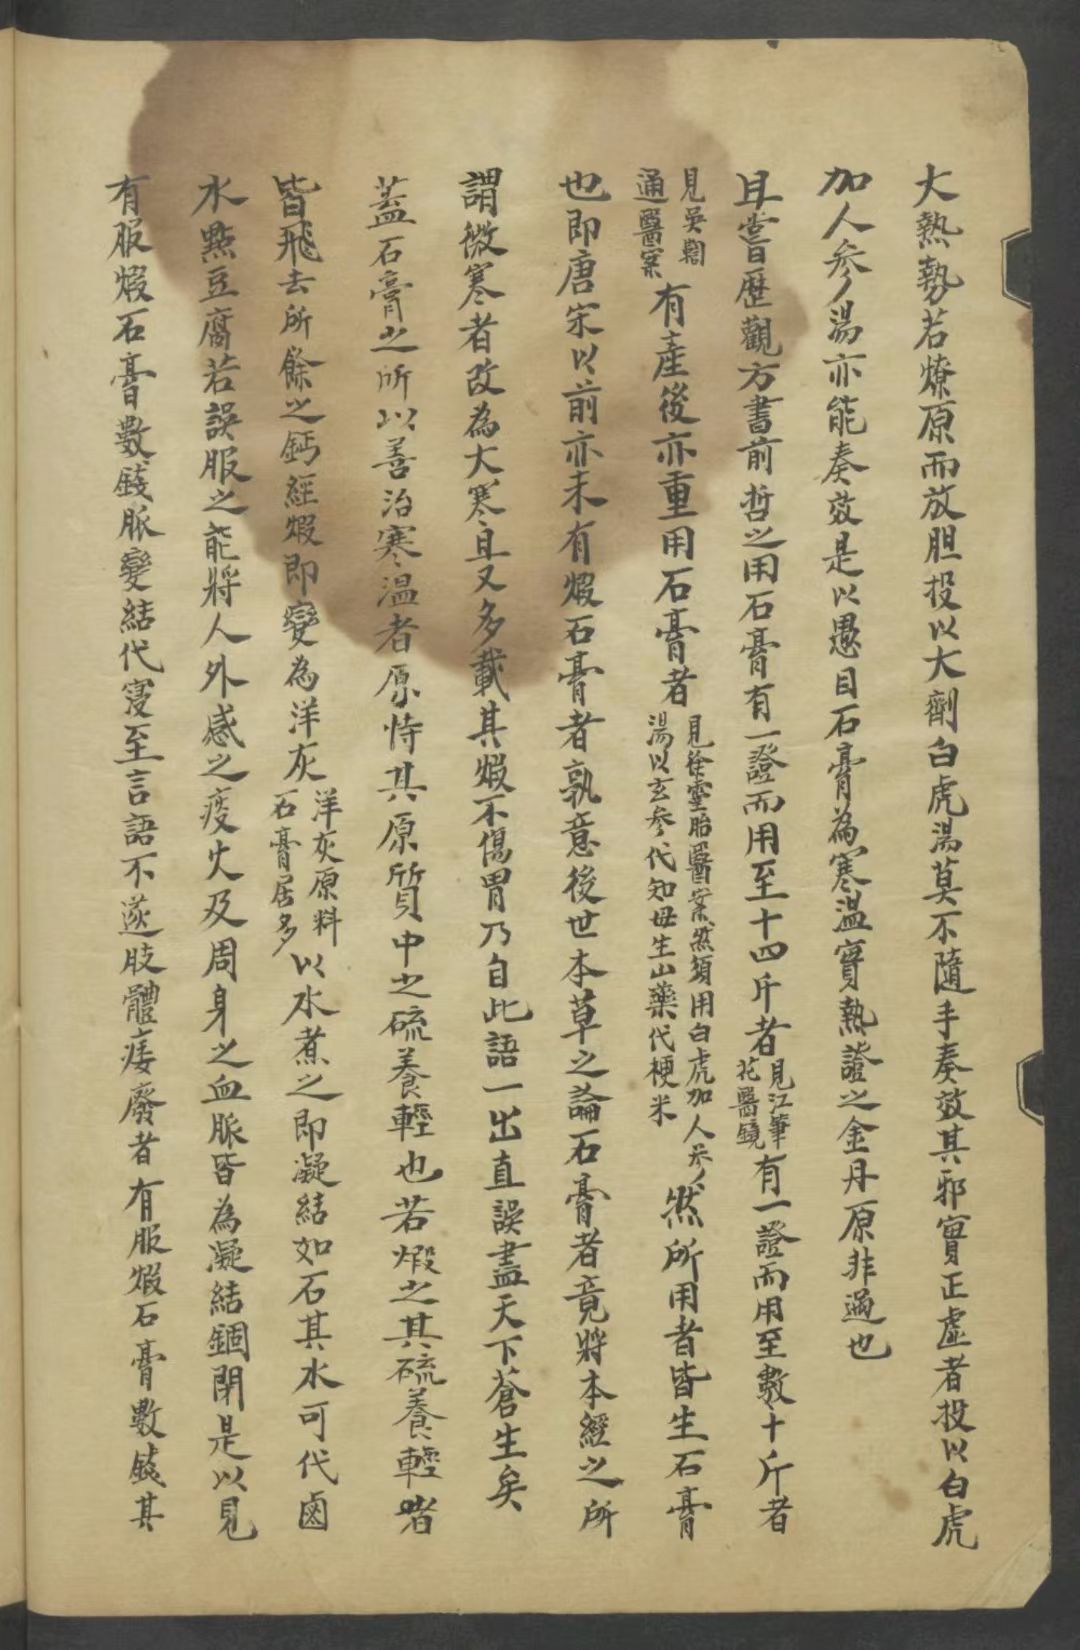 大熱勢若燎原而放胆投以大劑白虎湯莫不隨手奏效其邪實正虛者投以白虎
加人參湯亦能奏效是以愚目石膏為寒溫實熱證之金丹原非過也
且嘗歷觀方書前哲之用石膏有一證而用至十四斤者見江筆花醫鏡有一證而用至數十斤者
見吳鞠通醫案有產後亦重用石膏者見徐靈胎醫案然須用白虎加人參湯以玄參代知母生山藥代梗米然所用者皆生石膏
也即唐宋以前亦未有煆石膏者孰意後世本草之論石膏者竟將本經之所
謂微寒者改為大寒且又多載其煆不傷胃乃自此語一出直誤盡天下蒼生矣
蓋石膏之所以善治寒溫者原恃其原質中之硫養輕也若煆之其硫養輕者
皆飛去所餘之鈣經煆即變為洋灰洋灰原料石膏居多以水煮之即凝結如石其水可代鹵
水點豆腐若誤服之能將人外感之痰火及周身之血脈皆為凝結錮閉是以見
有服煆石膏數錢脈變結代寖至言語不遂肢體痿廢者有服煆石膏數錢其